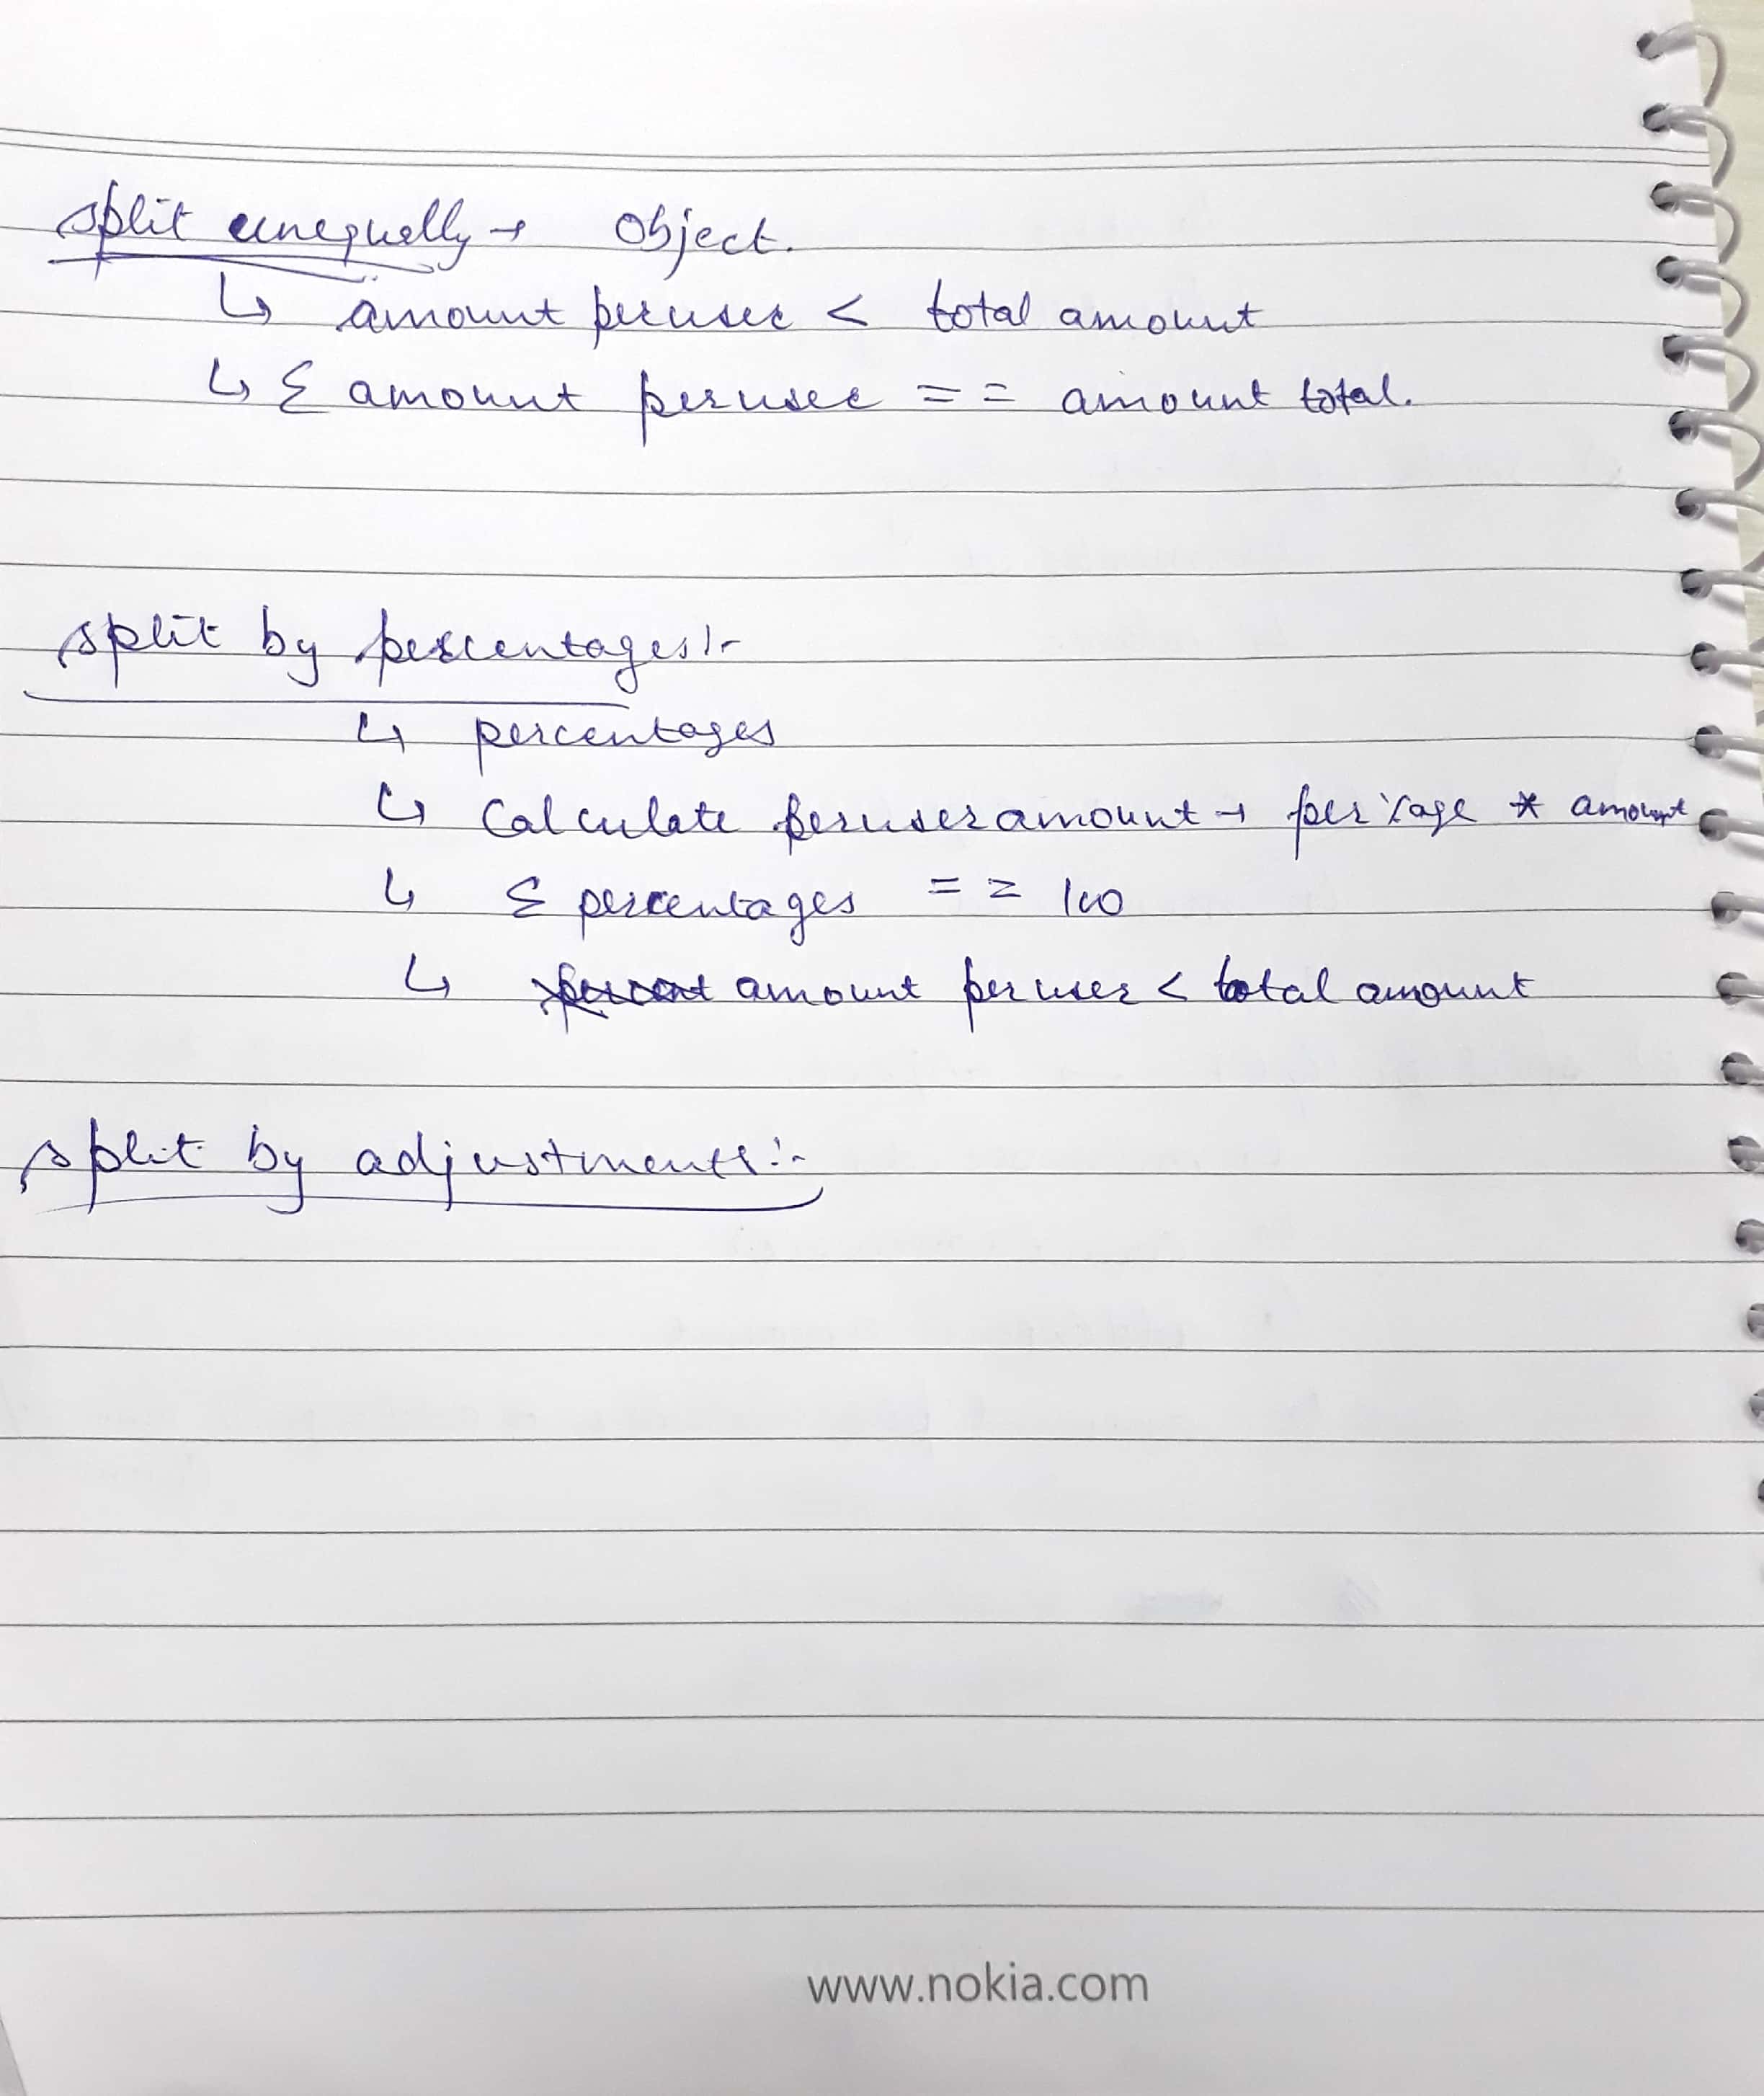 split unequally → Object.
↳ amount peruser < total amount
↳ Σ amount peruser == amount total.
split by percentages:-
↳ percentages
↳ Calculate peruseramount → per%age * amount
↳ Σ percentages == 100
↳ amount peruser < total amount
split by adjustments:-
www.nokia.com